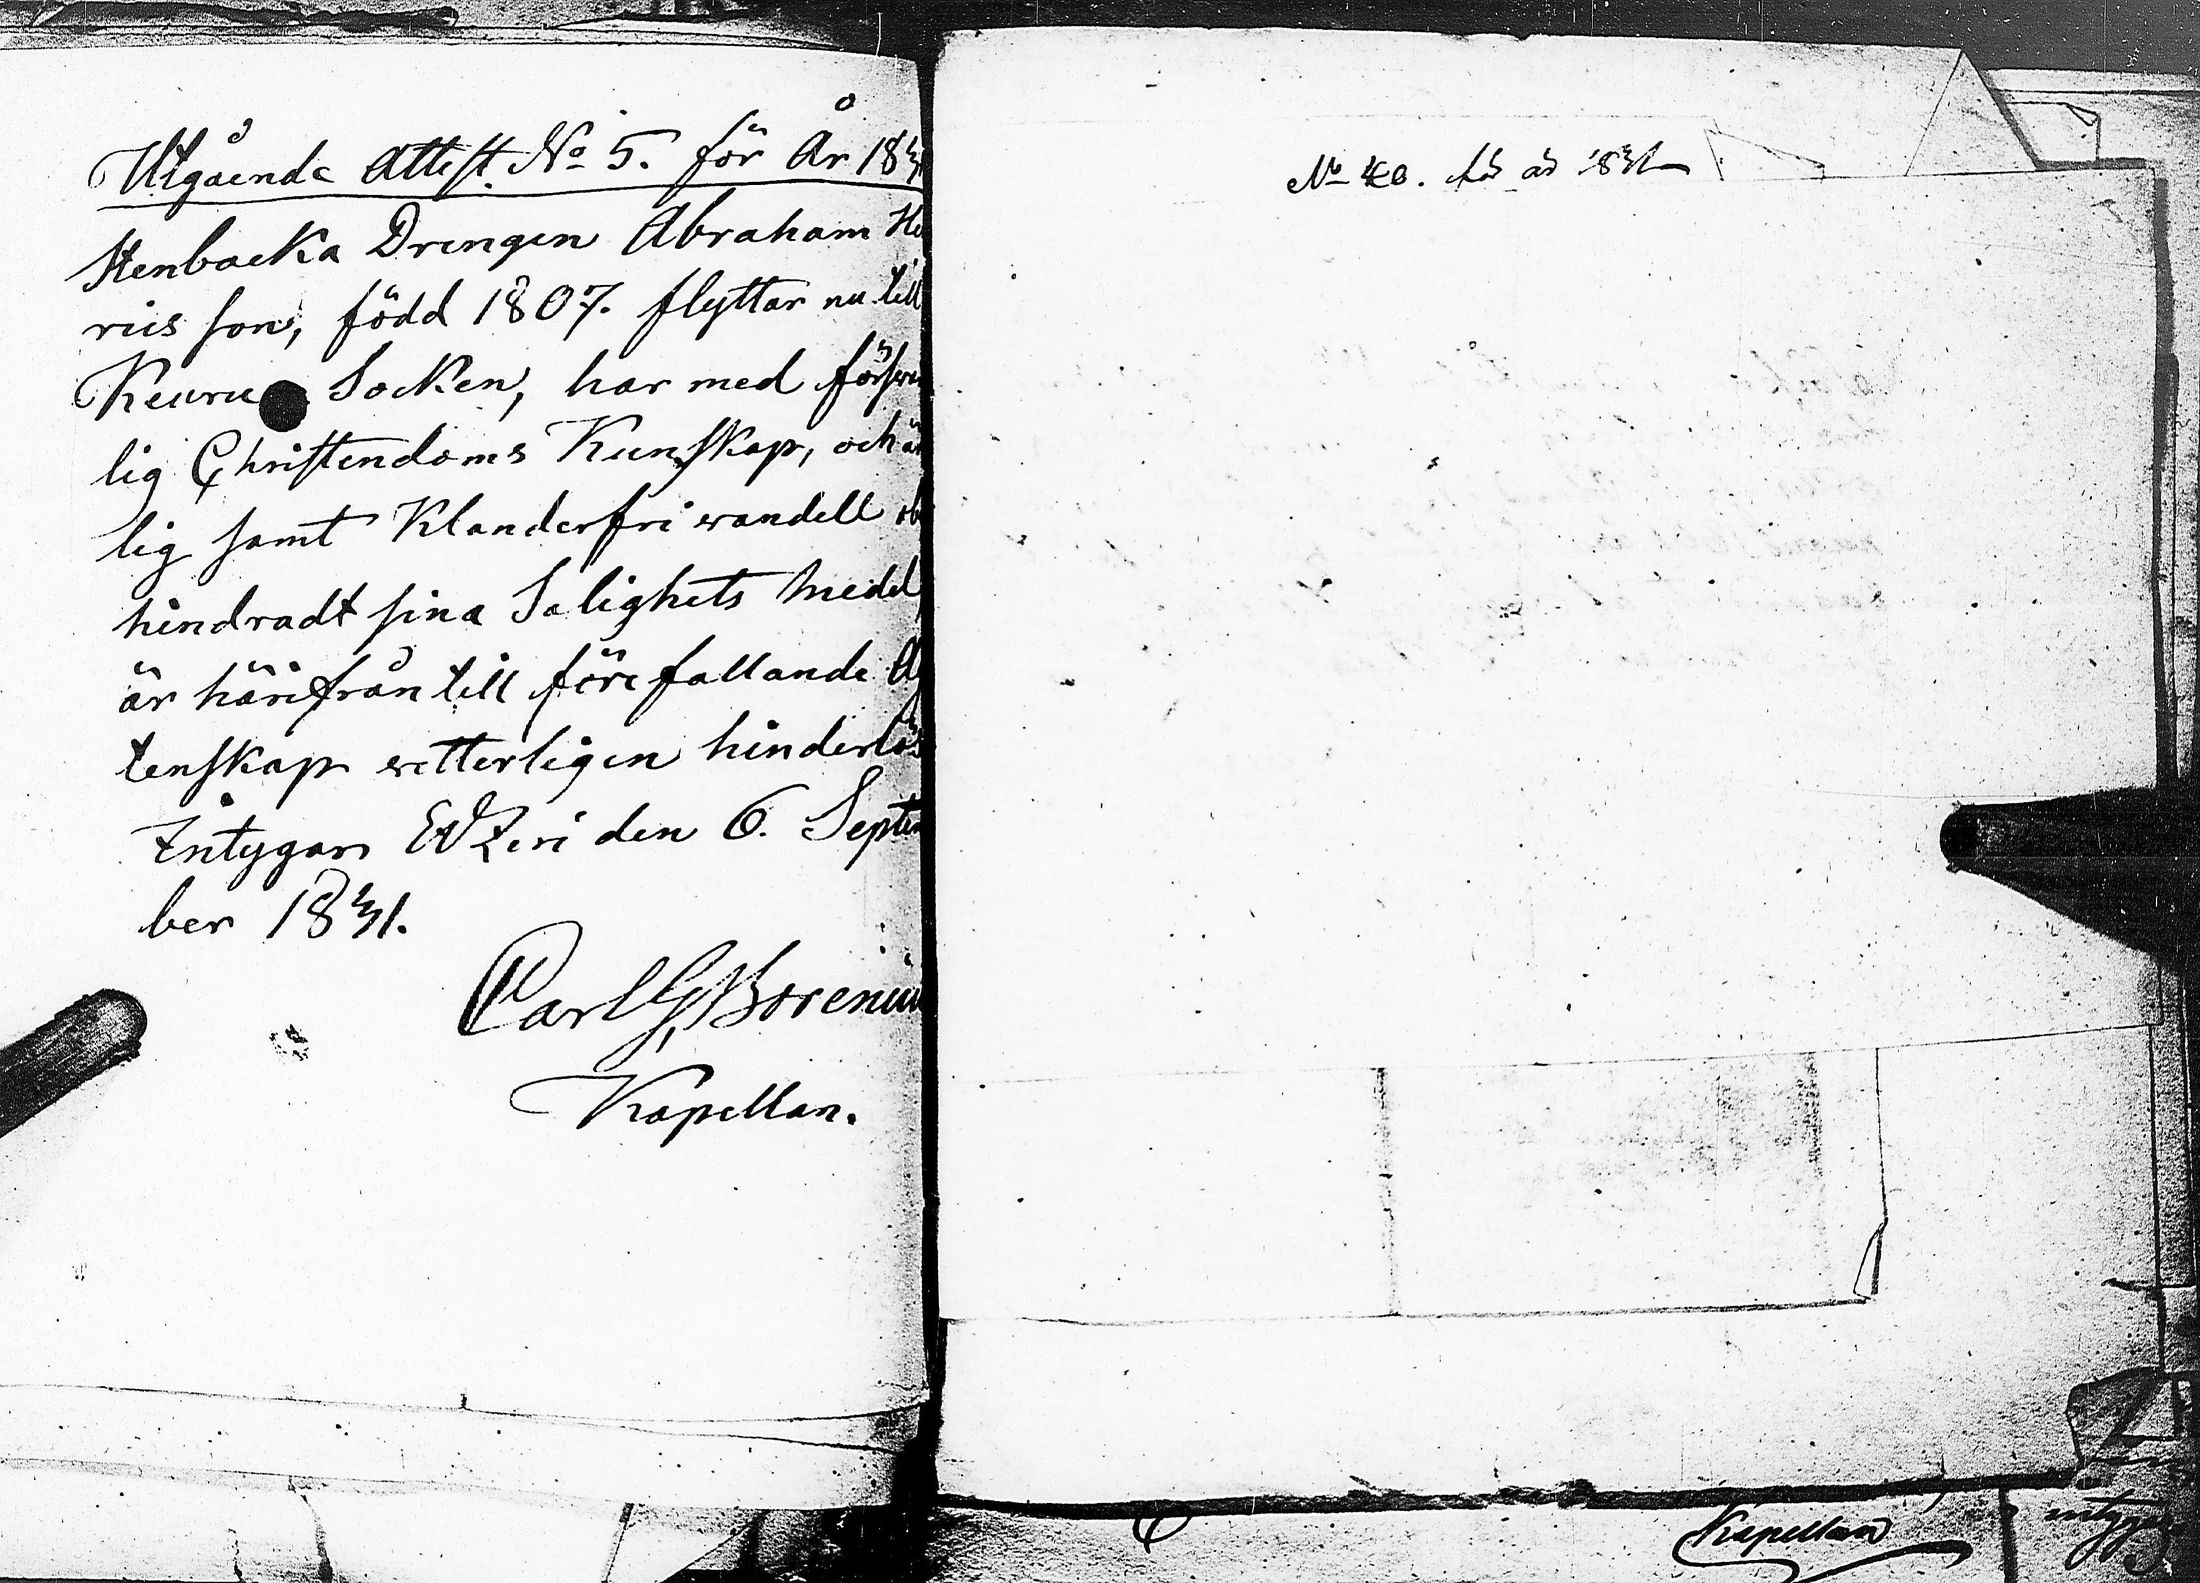 Utgående Attest No 5. för År 1831
Stenbacka Drengen Abraham He
riis son, född 1807. flyttar nu till
Keuru Socken, har med försvar
lig Christendoms Kunskap, och är
lig samt Klanderfri wandell obe
hindradt sina Salighets Medel,
är härifrån till förefallande Ag
tenskap vetterligen hinderlös
Intygar Etzeri den 6. Septem
ber 1831.
Carl G Borenius
Kapellan.
No 40. för år 1831
Kapellan
intygar